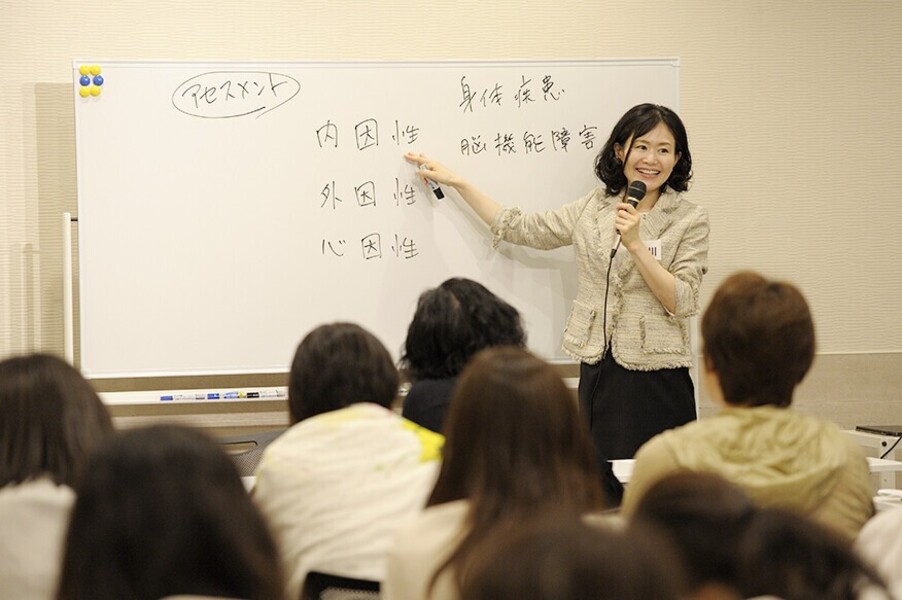 アセスメント
内因性 身体疾患
脳機能障害
外因性
心因性
川